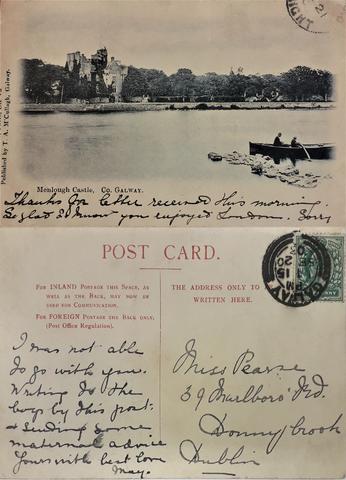 Published by T. A. McCullagh, Galway.
Menlough Castle, Co. GALWAY.
Thanks for letter received this morning.
So glad to know you enjoyed London. Sorry
POST CARD.
FOR INLAND POSTAGE THIS SPACE, AS
WELL AS THE BACK, MAY NOW BE
USED FOR COMMUNICATION.
FOR FOREIGN POSTAGE THE BACK ONLY.
(Post Office Regulation).
THE ADDRESS ONLY TO BE
WRITTEN HERE.
I was not able
to go with you.
Writing to the
boys by this post
& sending some
maternal advice
Yours with best love
May.
Miss Pearse
39 Marlboro' Rd.
Donnybrook
Dublin
GALWAY